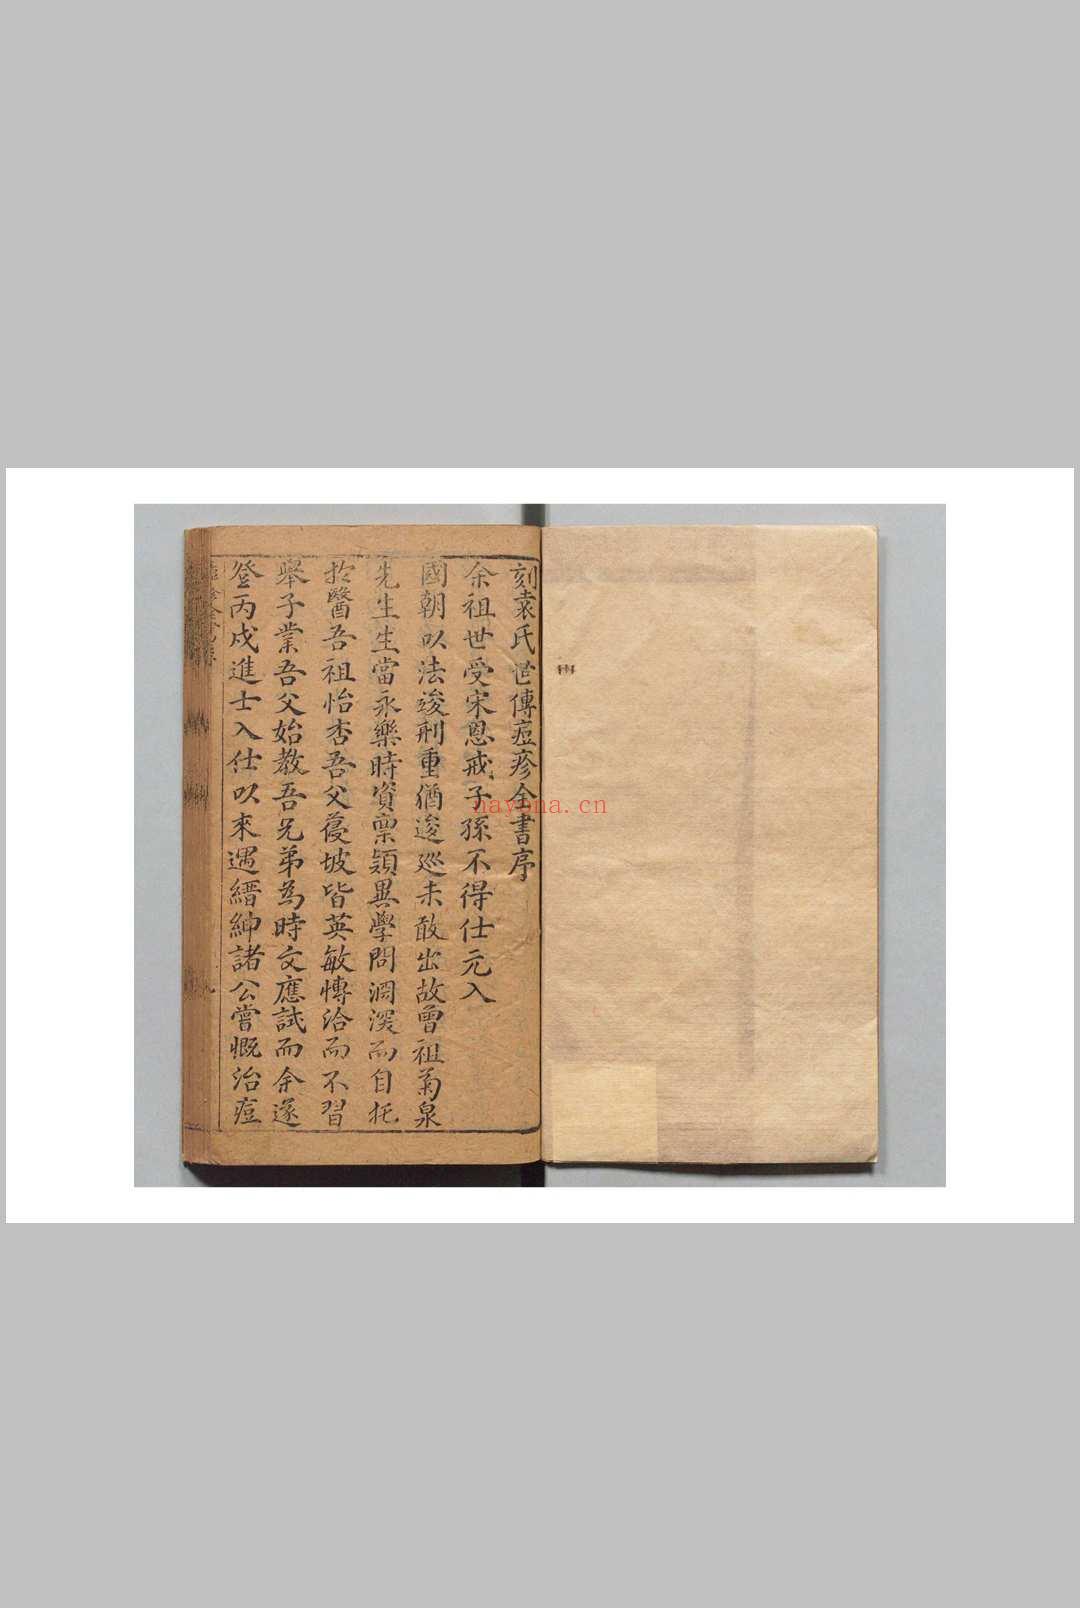 刻袁氏世傳痘疹全書序
余祖世受宋恩戒子孫不得仕元入
國朝以法浚刑重猶逡巡未敢出故曾祖菊泉
先生生當永樂時資稟穎異學問淵深而自托
於醫吾祖怡杏吾父葠坡皆英敏慱洽而不習
舉子業吾父始教吾兄弟為時文應試而余遂
登丙戌進士入仕以來遇縉紳諸公嘗慨治痘
nayona.cn